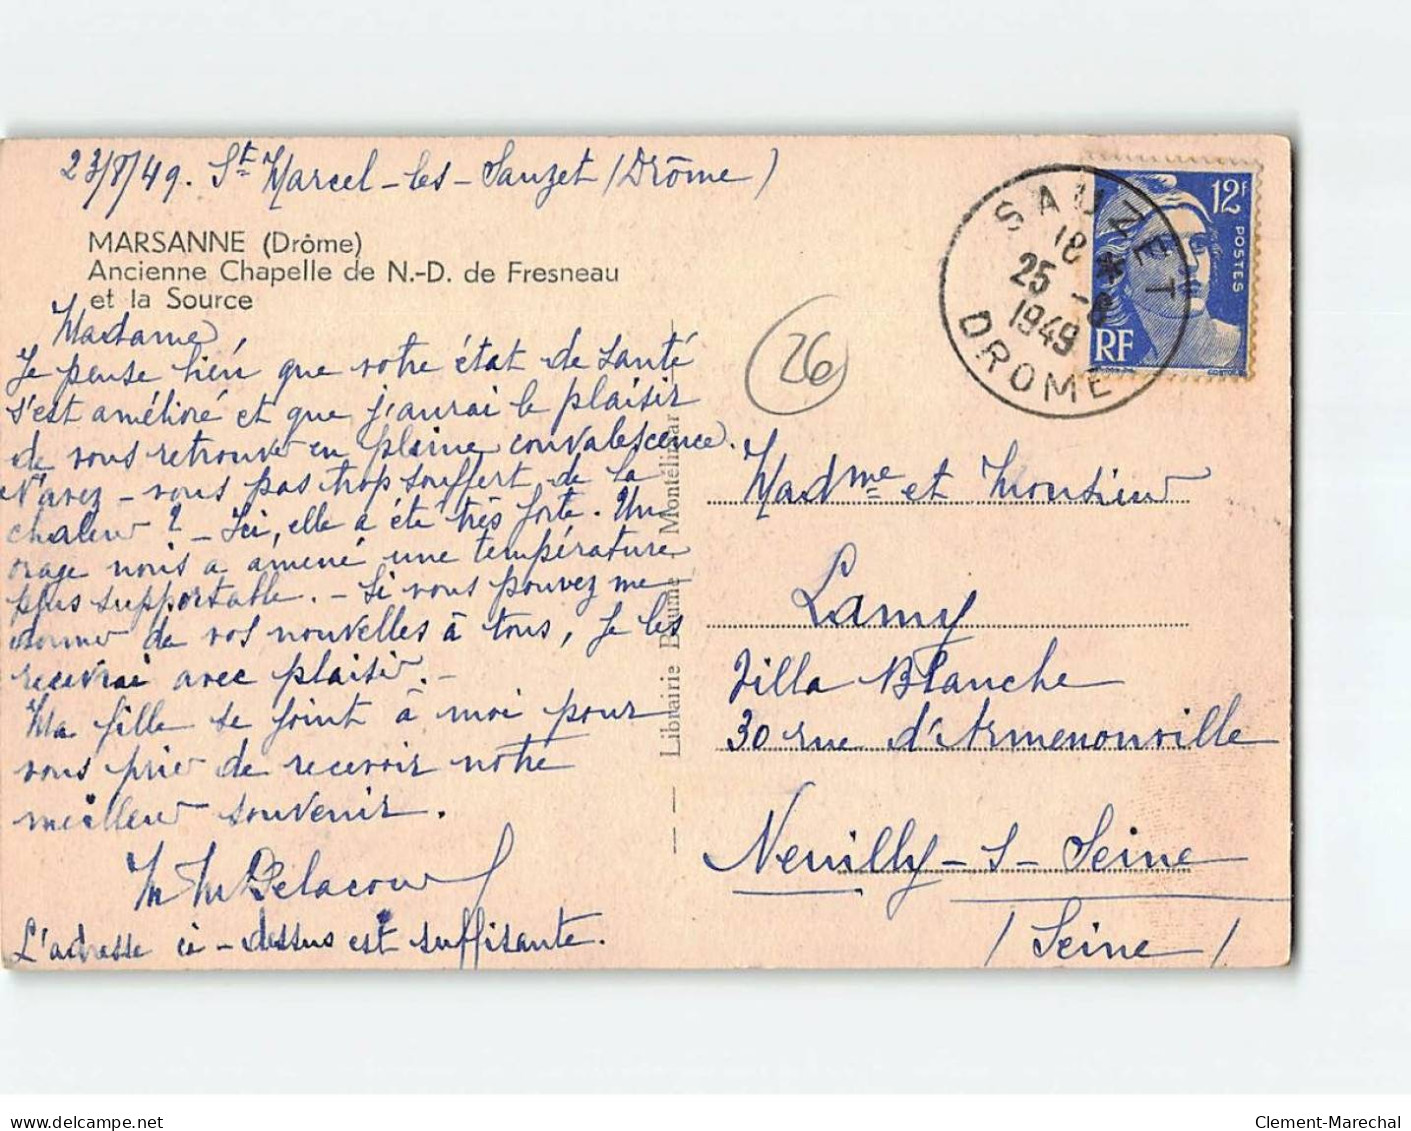 23/8/49. St Marcel-les-Sauzet (Drôme)
MARSANNE (Drôme)
Ancienne Chapelle de N.-D. de Fresneau
et la Source
Madame,
Je pense bien que votre état de santé
s'est amélioré et que j'aurai le plaisir
de vous retrouver en pleine convalescence.
N'avez-vous pas trop souffert de la
chaleur ? - Ici, elle a été très forte. Un
orage nous a amené une température
plus supportable. - Si vous pouvez me
donner de vos nouvelles à tous, je les
recevrai avec plaisir. -
Ma fille se joint à moi pour
vous prier de recevoir notre
meilleur souvenir.
M M Delacour
L'adresse ci-dessus est suffisante.
Librairie Baume, Montélimar
26
SAUZET
18 *
25 -8
1949
DROME
12F
POSTES
RF
Madme et Monsieur
Lamy
Villa Blanche
30 rue d'Armenonville
Neuilly-s-Seine
(Seine)
www.delcampe.net
Clement-Marechal